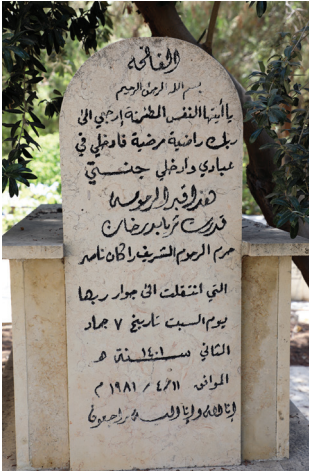 الفاتحة
بسم الله الرحمن الرحيم
يا أيتها النفس المطمئنة إرجعي الى
ربك راضية مرضية فادخلي في
عبادي وادخلي جنتي
هذا قبر المرحومه
قدريه ثريا بدرخان
حرم المرحوم الشريف راكان ناصر
التي انتقلت الى جوار ربها
يوم السبت تاريخ ٧ جماد
الثاني سنة ١٤٠١ هـ
الموافق ١١/ ٤/ ١٩٨١ م
إنا لله وإنا اليه راجعون